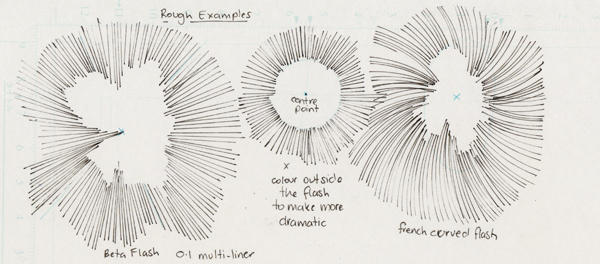 Rough Examples
centre
point
x
colour outside
the flash
to make more
dramatic
french curved flash
Beta Flash 0.1 multi-liner